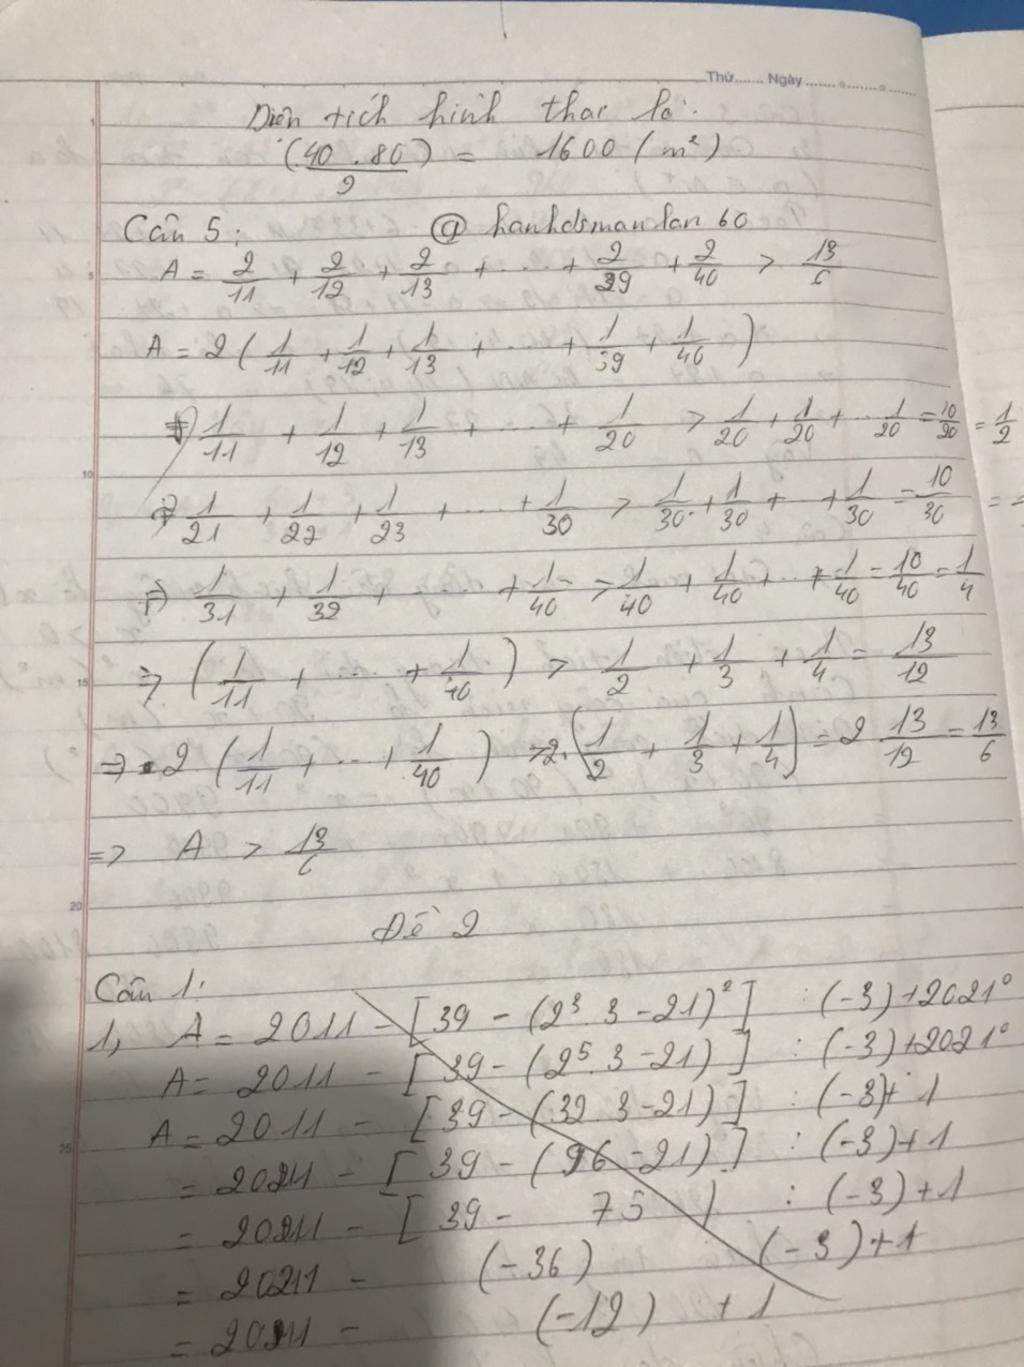 Thứ...... Ngày.......
Diện tích hình thoi là:
(40.80)/2 = 1600 (m²)
Câu 5: @ hanhdsmanlan 60
A = 2/11 + 2/12 + 2/13 + ... + 2/39 + 2/40 > 13/6
A = 2 (1/11 + 1/12 + 1/13 + ... + 1/39 + 1/40)
1/11 + 1/12 + 1/13 + ... + 1/20 > 1/20 + 1/20 + ... 1/20 = 10/20 = 1/2
1/21 + 1/22 + 1/23 + ... + 1/30 > 1/30 + 1/30 + + 1/30 = 10/30 =
1/31 + 1/32 + ... + 1/40 > 1/40 + 1/40 + ... + 1/40 = 10/40 = 1/4
=> (1/11 + ... + 1/40) > 1/2 + 1/3 + 1/4 = 13/12
=> 2 (1/11 + ... + 1/40) > 2.(1/2 + 1/3 + 1/4) = 2 13/12 = 13/6
=> A > 13/6
Đề 2
Câu 1:
1, A = 2011 - [39 - (2³.3 - 21)²] : (-3) + 2021⁰
A = 2011 - [39 - (2⁵.3 - 21)] : (-3) + 2021⁰
A = 2011 - [39 - (32.3 - 21)] : (-3) + 1
= 2021 - [39 - (96 - 21)] : (-3) + 1
= 20211 - [39 - 75] : (-3) + 1
= 20211 - (-36) (-3) + 1
= 20211 - (-12) + 1